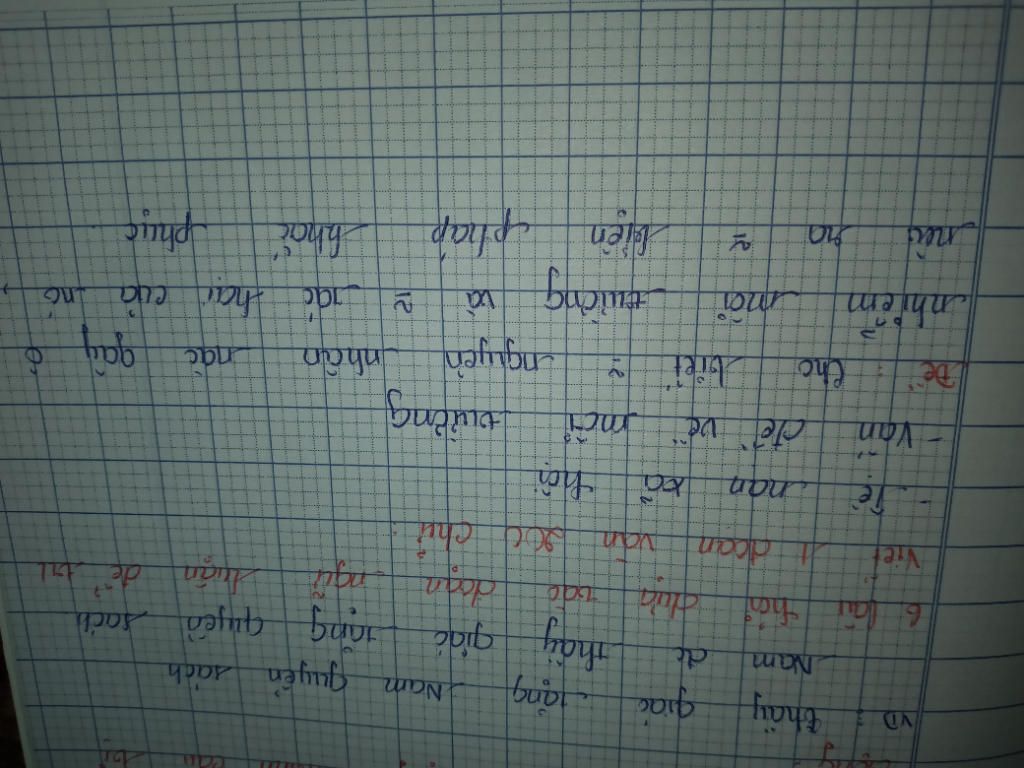 VD : thầy giáo tặng Nam quyển sách
Nam đc thầy giáo tặng quyển sách
6 câu hỏi dựa vào đoạn ngữ luận để trl
Viết 1 đoạn văn 200 chữ :
- Tệ nạn xã hội
- Vấn đề về môi trường
Đề : Cho biết ~ nguyên nhân nào gây ô
nhiễm môi trường và ~ tác hại của nó,
nêu ra ~ biện pháp khắc phục